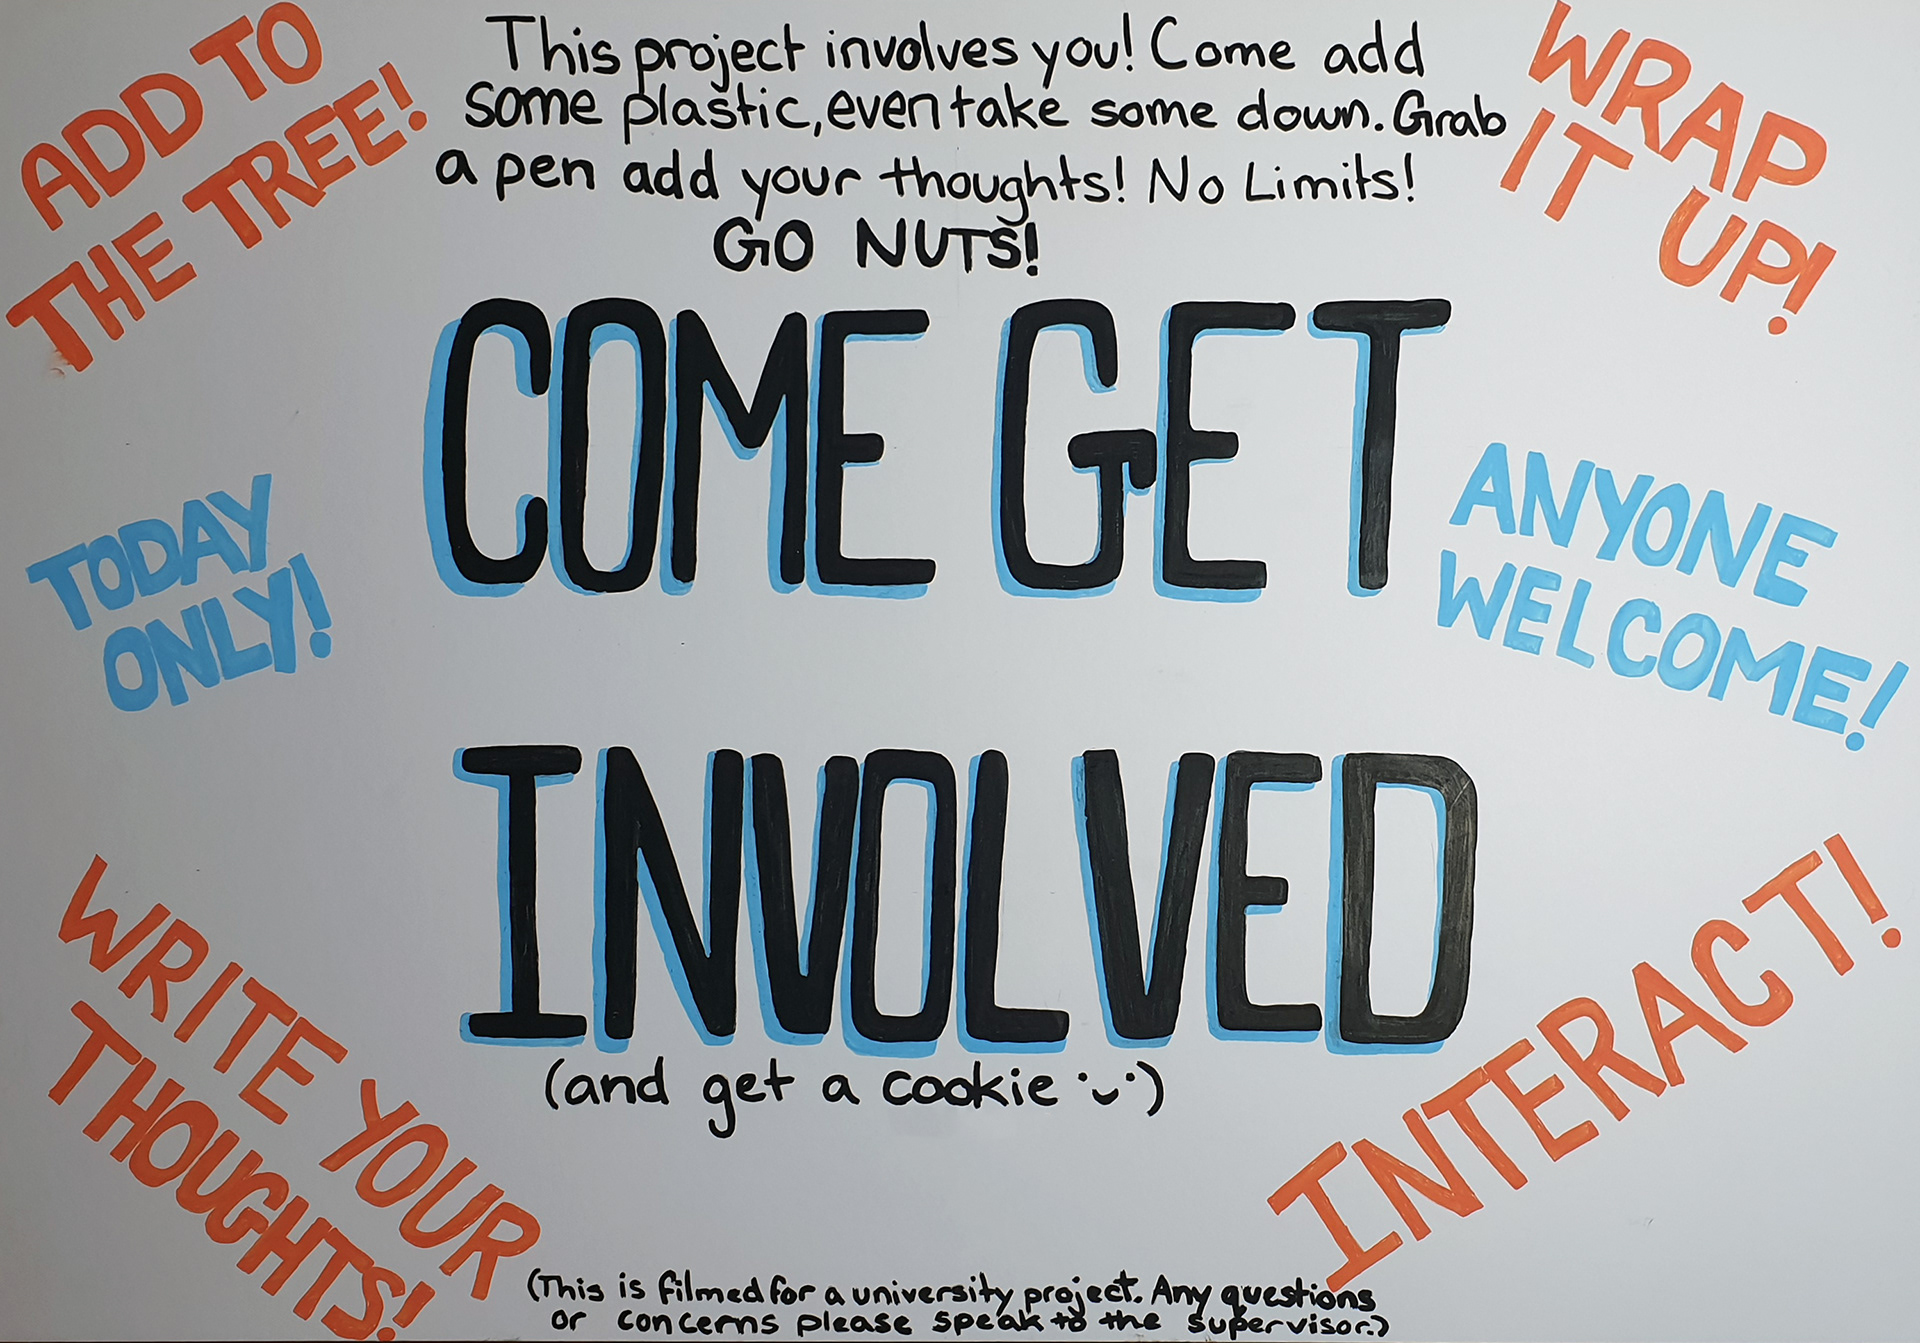 This project involves you! Come add
some plastic, even take some down. Grab
a pen add your thoughts! No Limits!
GO NUTS!
ADD TO
THE TREE!
WRAP
IT UP!
COME GET
TODAY
ONLY!
ANYONE
WELCOME!
INVOLVED
(and get a cookie ·ᴗ·)
WRITE YOUR
THOUGHTS!
INTERACT!
(This is filmed for a university project. Any questions
or concerns please speak to the supervisor.)